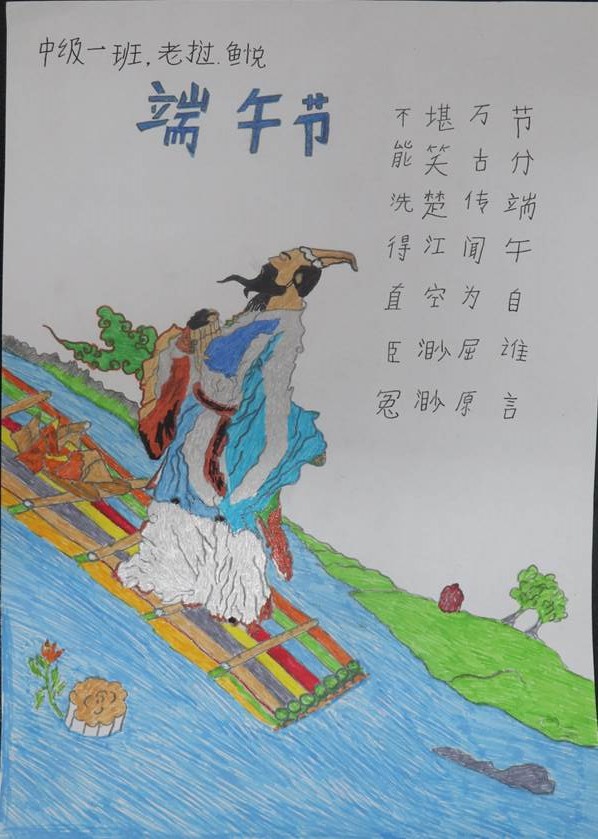 中级一班，老挝.鱼悦
端午节
节分端午自谁言
万古传闻为屈原
堪笑楚江空渺渺
不能洗得直臣冤